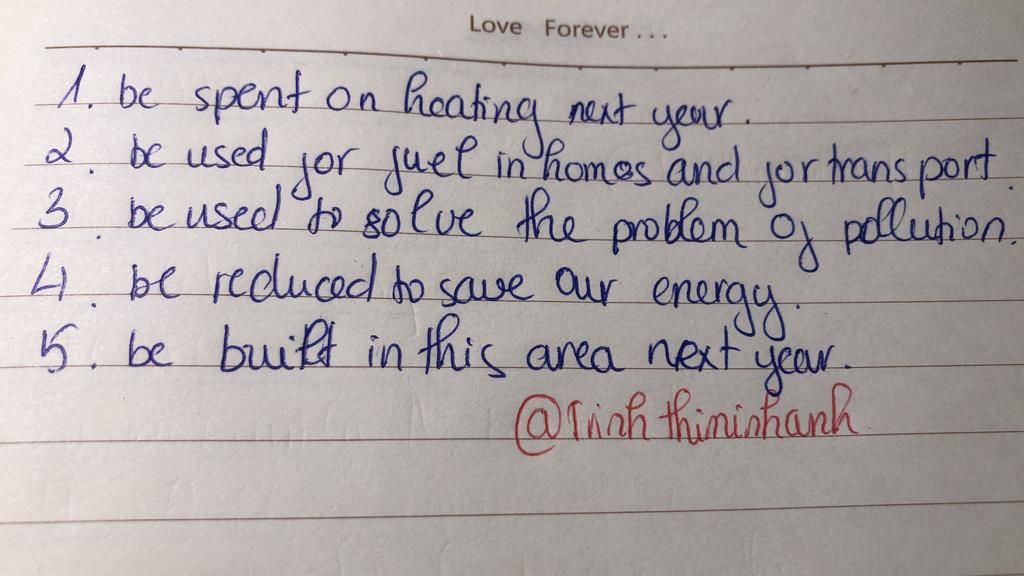 Love Forever...
1. be spent on heating next year.
2. be used for fuel in homes and for transport.
3. be used to solve the problem of pollution.
4. be reduced to save our energy.
5. be built in this area next year.
@Trinh thininhanh